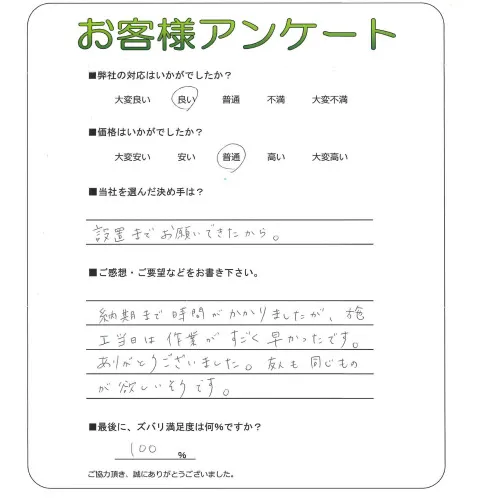 お客様アンケート
■弊社の対応はいかがでしたか？
大変良い 良い 普通 不満 大変不満
■価格はいかがでしたか？
大変安い 安い 普通 高い 大変高い
■当社を選んだ決め手は？
設置までお願いできたから。
■ご感想・ご要望などをお書き下さい。
納期まで時間がかかりましたが、施
工当日は作業がすごく早かったです。
ありがとうございました。友人も同じもの
が欲しいそうです。
■最後に、ズバリ満足度は何%ですか？
100 %
ご協力頂き、誠にありがとうございました。